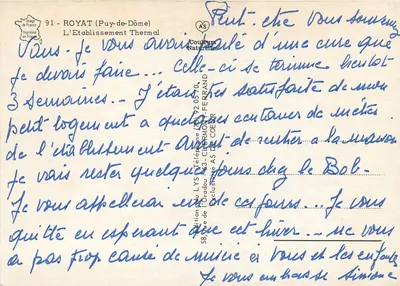 91 - ROYAT (Puy-de-Dôme)
L'Etablissement Thermal
AS
Peut-être vous souvenez
Vous - je vous avais parlé d'une cure que
je devais faire... Celle-ci se termine bientôt
3 semaines... J'étais très satisfaite de mon
petit logement a quelques centaines de mètres
de l'établissement Avant de rentrer a la maison
je vais rester quelques jours chez le Bob-
Je vous appellerai un de ces jours... Je vous
quitte en esperant que cet hiver... ne vous
a pas trop causé de misère a vous et les enfants
Je vous embrasse Simone